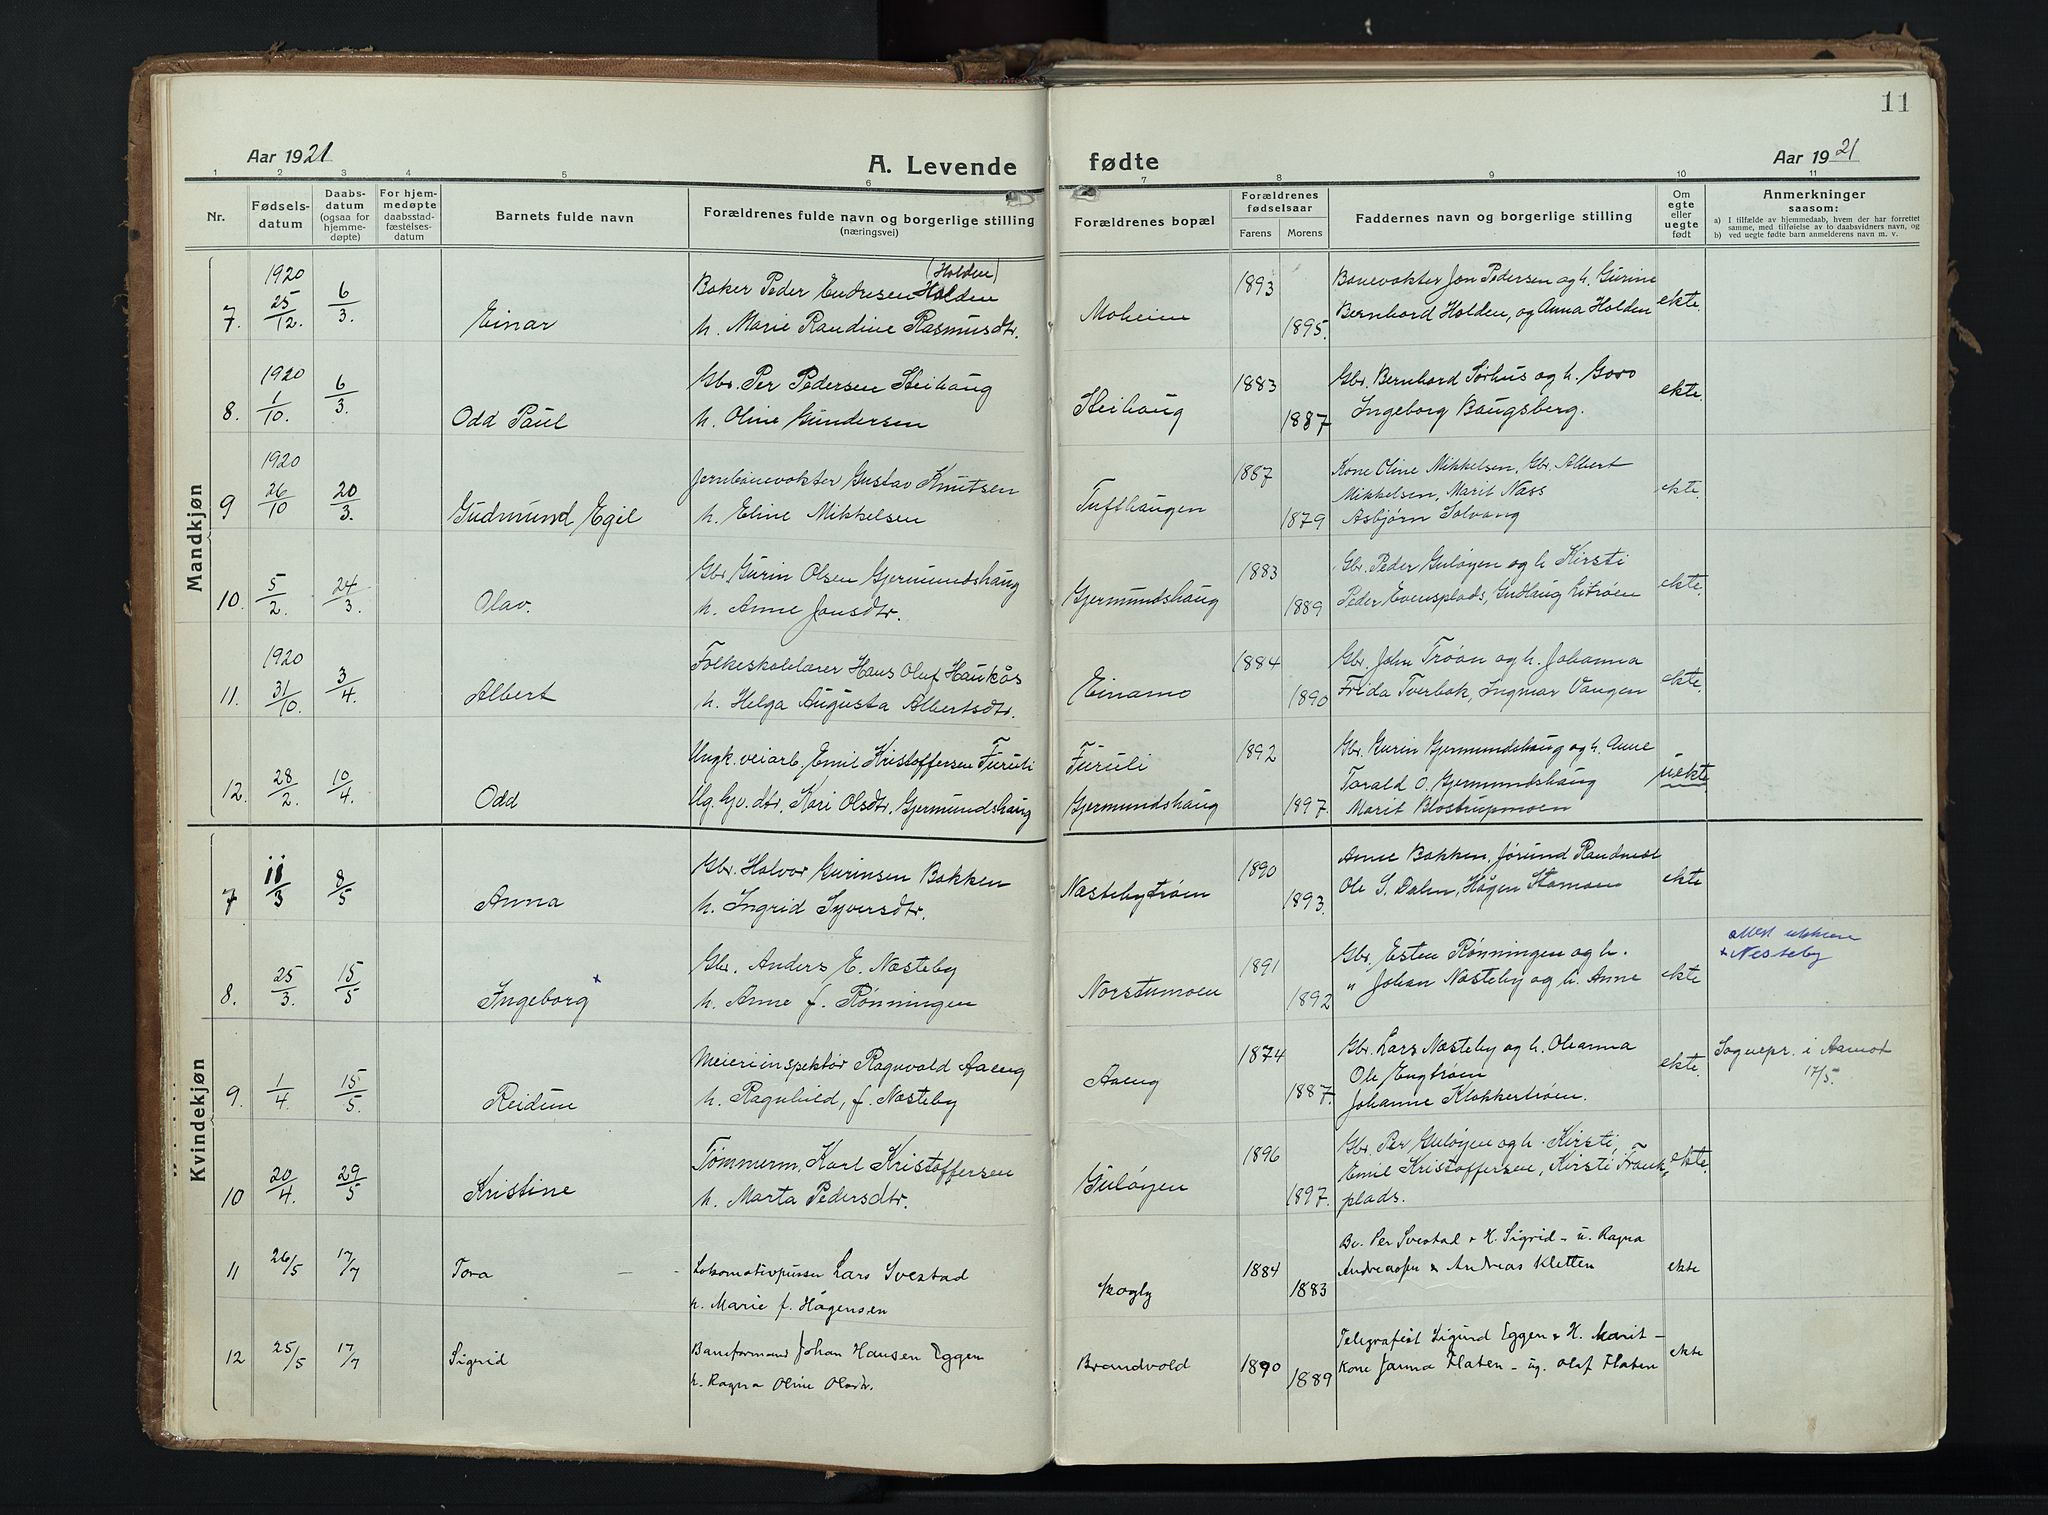 11
Aar 1921
A. Levende
fødte
Aar 1921
1 2 3 4 5 6 7 8 9 10 11
Nr.
Fødsels-
datum
Daabs-
datum
(ogsaa for
hjemme-
døpte)
For hjem-
medøpte
daabsstad-
fæstelses-
datum
Barnets fulde navn
Forældrenes fulde navn og borgerlige stilling
(næringsvei)
Forældrenes bopæl
Forældrenes
fødselsaar
Farens Morens
Faddernes navn og borgerlige stilling
Om
egte
eller
uegte
født
Anmerkninger
saasom:
a) I tilfælde av hjemmedaab, hvem der har forrettet
samme, med tilføielse av to daabsvidners navn, og
b) ved uegte fødte barn anmelderens navn m. v.
Mandkjøn
7. 1920 25/12. 6/3. Einar
Baker Peder Endresen Holden (Holden)
h. Marie Randine Rasmusdtr.
Moheim 1893 1895.
Banevokter Jon Pedersen og h. Gurine
Bernhard Holden, og Anna Holden
ekte.
8. 1920 1/10. 6/3. Odd Paul
Gbr. Per Pedersen Steihaug
h. Oline Gundersen
Steihaug 1883 1887
Gbr. Bernhard Sørhus og h. Goro
Ingeborg Baugsberg.
ekte.
9 1920 26/10 20/3. Gudmund Egil
Jernbanevokter Gustav Knutsen
h. Eline Mikkelsen
Tufthaugen 1887 1879
Kone Oline Mikkelsen, Gbr. Albert
Mikkelsen, Marit Næss
Asbjørn Solvang
ekte.
10. 5/2. 24/3. Olav.
Gbr. Gurin Olsen Gjermundshaug
h. Anne Jonsdtr.
Gjermundshaug 1883 1889
Gbr. Peder Guløyen og h Kirsti
Peder Evensplads, Gudlaug
ekte.
11. 1920 31/10. 3/4. Albert
Folkeskolelærer Hans Oluf Haukås
h. Helga Augusta Albertsdtr.
Einamo 1884 1890
Gbr. John Trøan og h. Johanna
Frida Tverbak, Ingmar Vangen
ekte.
12. 28/2. 10/4. Odd
Ungk. veiarb. Emil Kristoffersen Furuli
Ug. gv. dtr. Kari Olsdtr. Gjermundshaug
Furuli
Gjermundshaug
1892 1897.
Gbr. Gurin Gjermundshaug og h. Anne
Tarald O. Gjermundshaug
Marit Blostrupmoen
uekte
Kvindekjøn
7 11/3 8/5 Anna
Gbr. Halvor Gurinsen Bakken
h. Ingrid Syversdtr.
Næstebytrøen 1890 1893.
Anne Bakken, Jørund Randmæl
Ole S. Dalen, Hågen Stamoen
ekte
8. 25/3. 15/5 Ingeborg ×
Gbr. Anders E. Næsteby
h. Anne f. Rønningen
Norstumoen 1891 1892
Gbr. Esten Rønningen og h.
" Johan Næsteby og h. Anne
ekte
× Nesteby
9. 1/4 15/5. Reidun
Meieriinspektør Ragnvald Aaeng
h. Ragnhild, f. Næsteby
Aaeng 1874 1887.
Gbr. Lars Næsteby og h. Oleanna
Ole Engtrøen
Johanne Klokkertrøen.
ekte.
Sognepr. i Aamot
17/5.
10 20/4. 29/5 Kristine
Tømmerm. Karl Kristoffersen
h. Marta Pedersdtr.
Guløyen 1896 1897.
Gbr. Per Guløyen og h. Kirsti
Emil Kristoffersen, Kirsti Frank-
plads.
ekte.
11 26/5 17/7 Tora
Lokomotivpusser Lars Svestad
h. Marie f. Hågensen
Skogly 1884 1883
Bv. Per Svestad + H. Sigrid - u. Ragna
Andreassen & Andreas Kletten
ekte
12 25/5 17/7 Sigrid
Baneformand Johan Hansen Eggen
h. Ragna Oline Olsdtr.
Brandvold 1890 1889
Telegrafist Sigurd Eggen & H. Marit -
Kone Janna Flaten - ug. Olaf Flaten
ekte